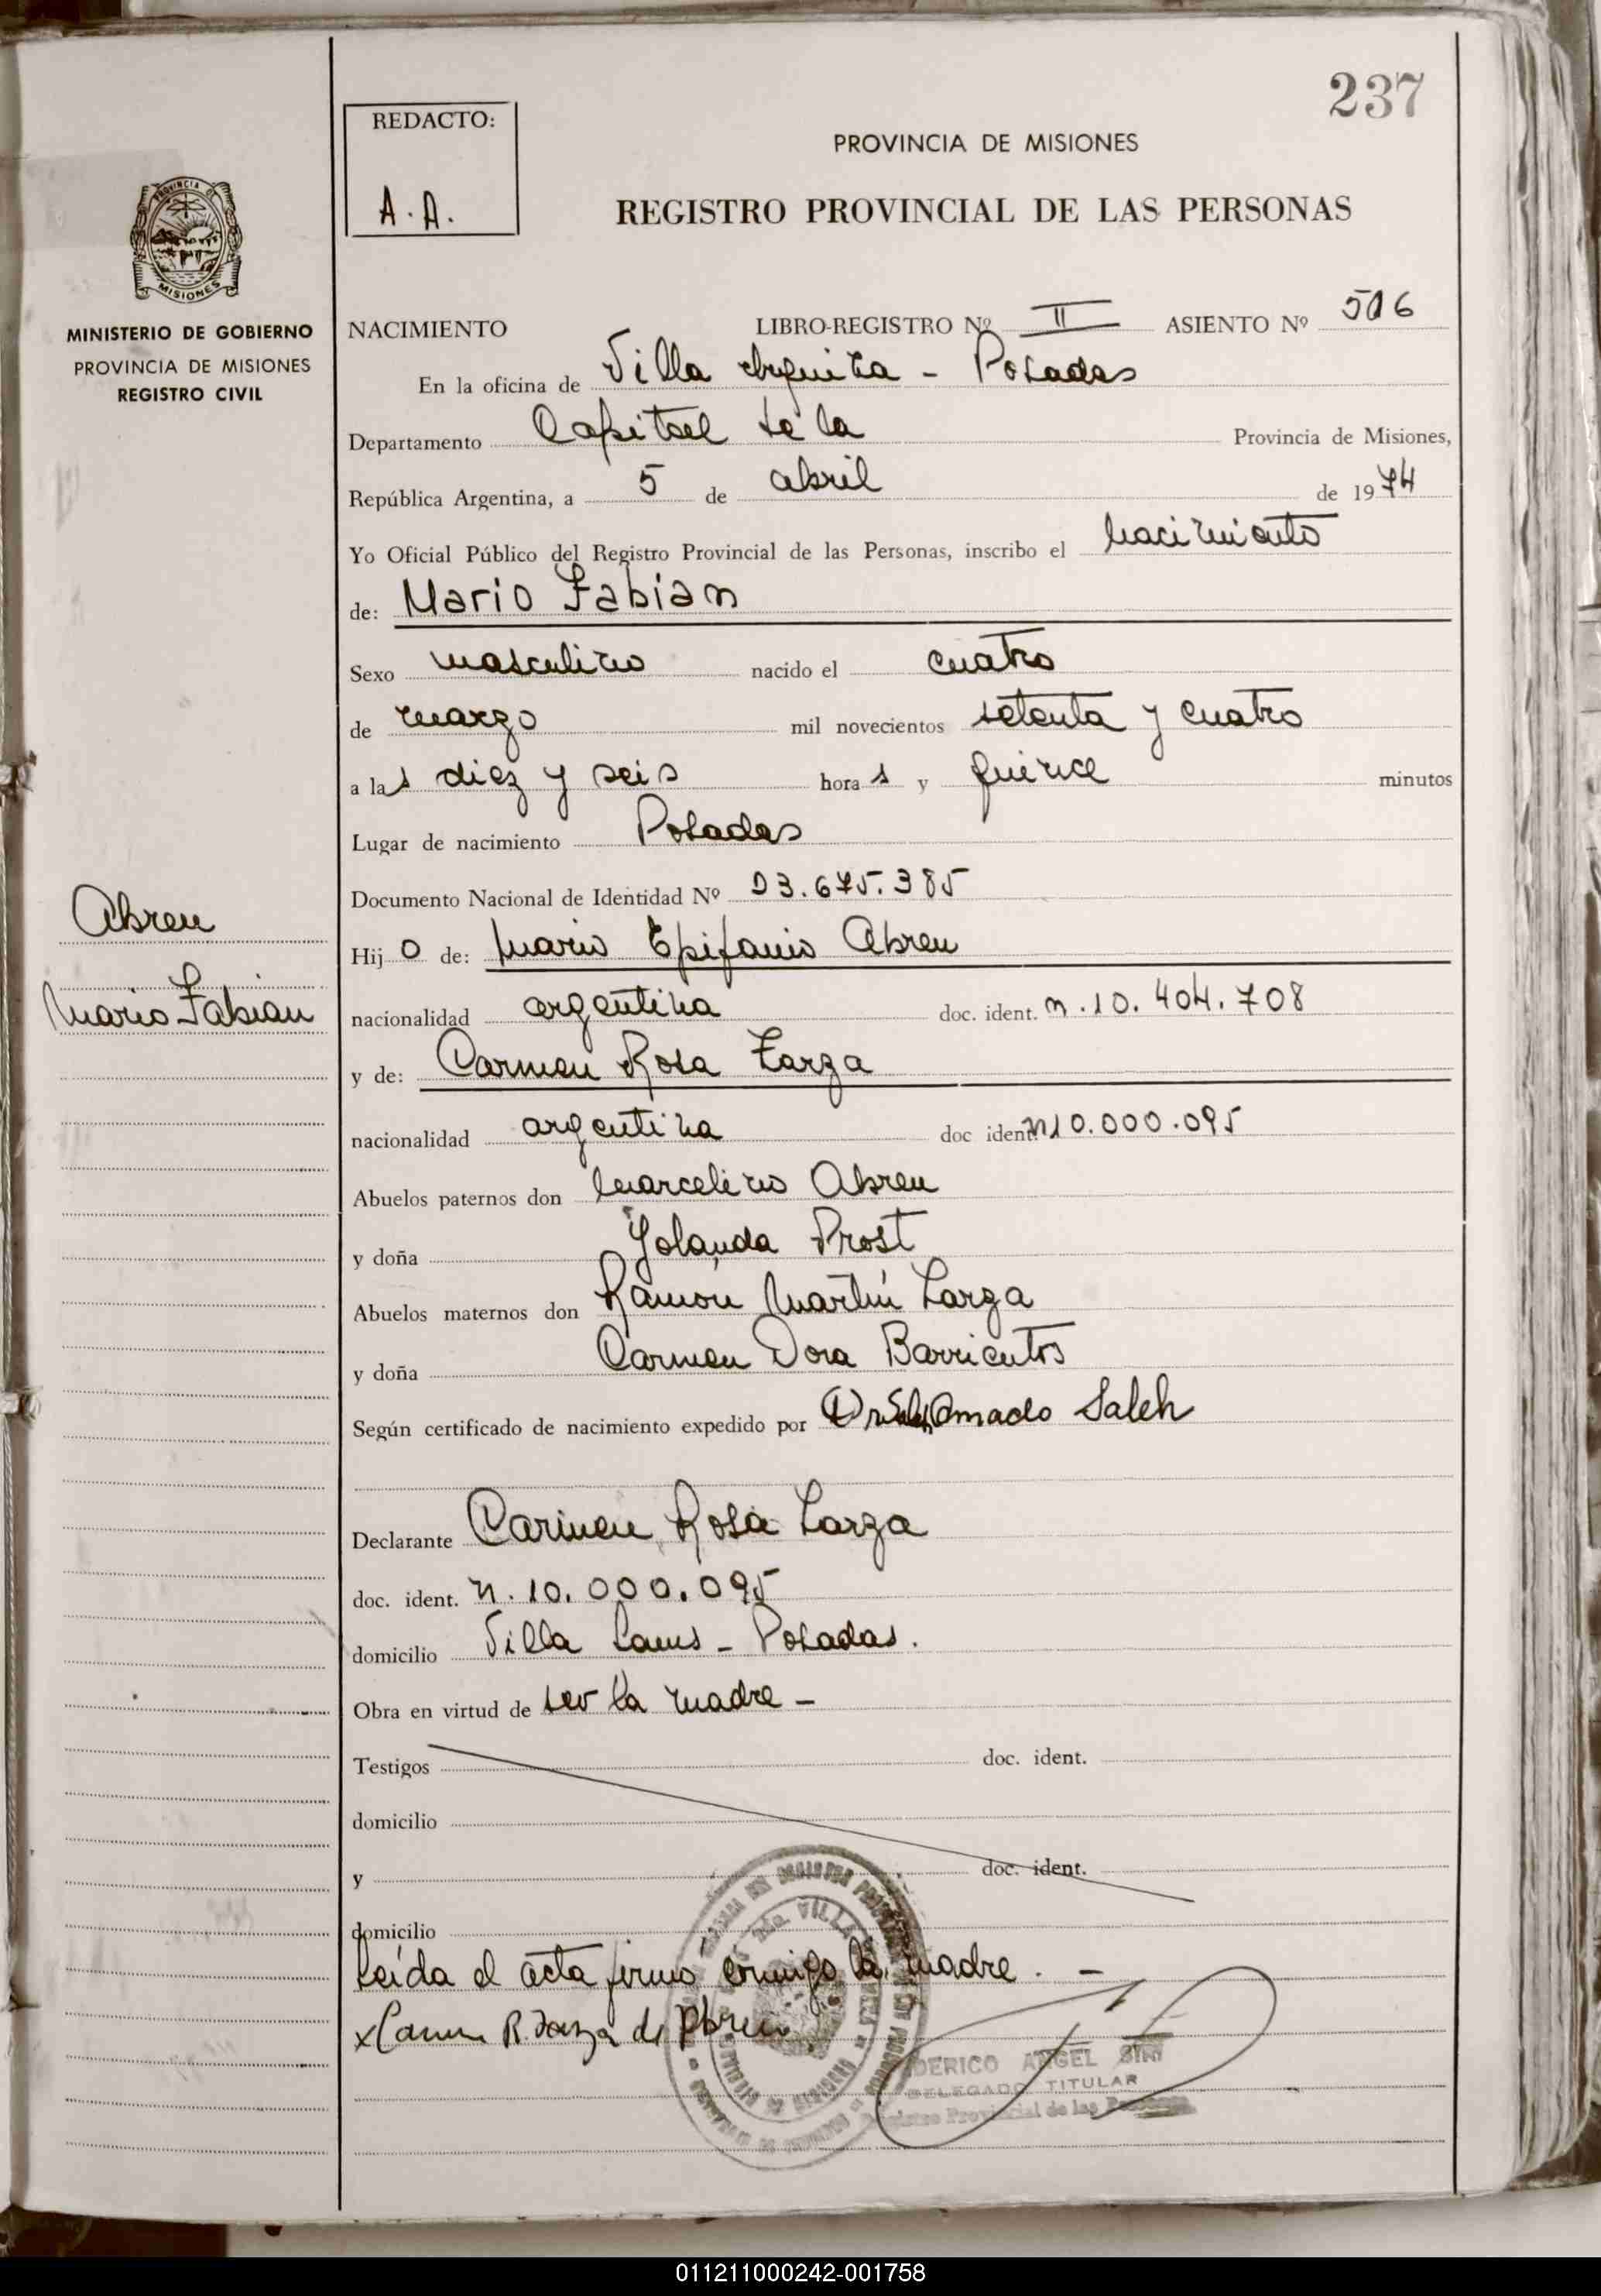 237
REDACTO:
A. A.
PROVINCIA DE MISIONES
REGISTRO PROVINCIAL DE LAS PERSONAS
PROVINCIA DE
MISIONES
MINISTERIO DE GOBIERNO
PROVINCIA DE MISIONES
REGISTRO CIVIL
NACIMIENTO LIBRO-REGISTRO Nº II ASIENTO Nº 506
En la oficina de Villa Urquiza - Posadas
Departamento Capital de la Provincia de Misiones,
República Argentina, a 5 de abril de 1974
Yo Oficial Público del Registro Provincial de las Personas, inscribo el nacimiento
de: Mario Fabian
Sexo masculino nacido el cuatro
de marzo mil novecientos setenta y cuatro
a las diez y seis horas y quince minutos
Lugar de nacimiento Posadas
Documento Nacional de Identidad Nº 23.675.385
Abreu
Mario Fabian
Hijo de: Mario Epifanio Abreu
nacionalidad argentina doc. ident. m. 10. 404. 708
y de: Carmen Rosa Zarza
nacionalidad argentina doc ident. 10.000.095
Abuelos paternos don Marcelino Abreu
y doña Yolanda Prost
Abuelos maternos don Ramón Martín Zarza
y doña Carmen Dora Barrientos
Según certificado de nacimiento expedido por Dr. Amado Saleh
Declarante Carmen Rosa Zarza
doc. ident. n. 10. 000. 095
domicilio Villa Lanus - Posadas.
Obra en virtud de ser la madre -
Testigos doc. ident.
domicilio
y doc. ident.
domicilio
Leída el acta firmó conmigo la madre. -
x Carmen R. Zarza de Abreu
DERICO ANGEL SIRI
DELEGADO TITULAR
Registro Provincial de las Personas
011211000242-001758